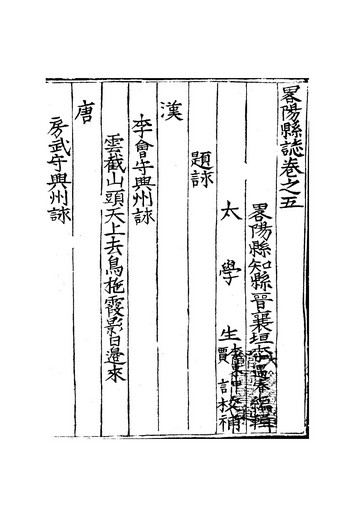 畧陽縣誌卷之五
畧陽縣知縣晉襄垣李遇春編輯
太學生
賈言校補
題詠
漢
李會守興州詠
雲截山頭天上去鳥拖霞影日邊來
唐
房武守興州詠